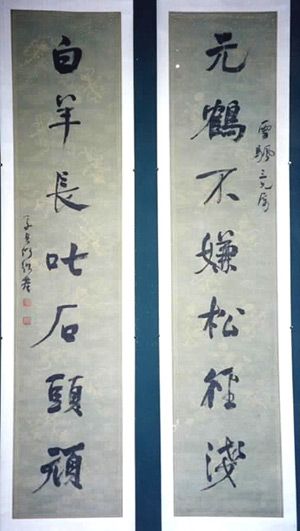 元鶴不嫌松徑淺
三兄屬
白羊長叱石頭頑
子貞何紹基